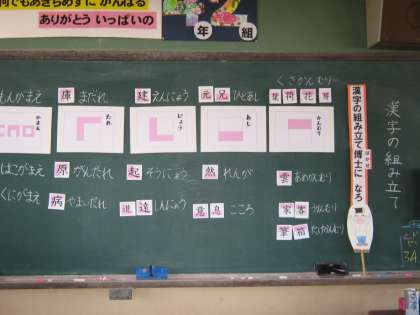 何でもあきらめずに がんばる
ありがとう いっぱいの
年 組
漢字の組み立て
漢字の組み立て博士に なろう
はかせ
くさかんむり
もんがまえ
庫 まだれ
建 えんにょう
元 兄 ひとあし
葉 荷 花
かまえ
たれ
にょう
あし
かんむり
はこがまえ
原 がんだれ
起 そうにょう
然 れんが
雲 あめかんむり
くにがまえ
病 やまいだれ
進 遠 しんにょう
意 息 こころ
家 客 うかんむり
筆 箱 たけかんむり
3A